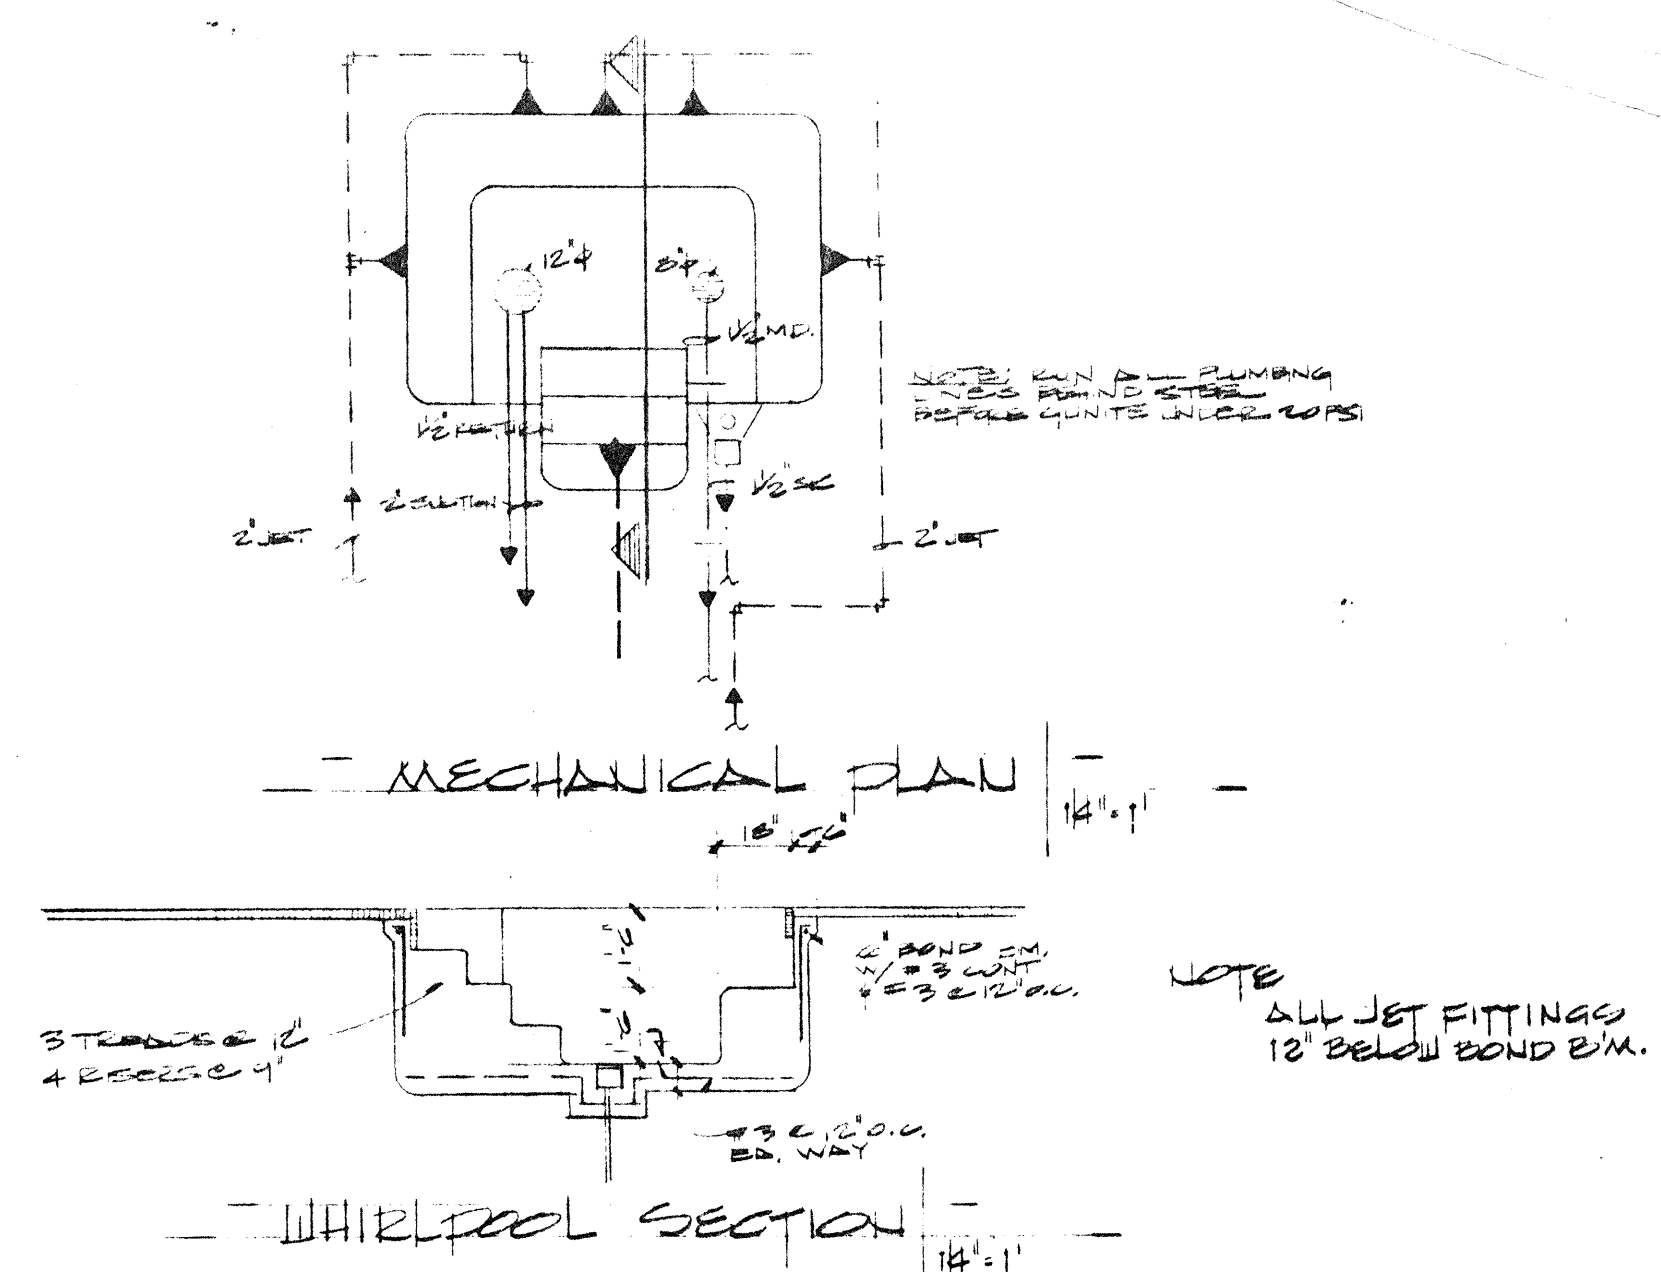 12"φ
8"φ
1½" M.D.
NOTE: RUN ALL PLUMBING
LINES BEHIND STEEL
BEFORE GUNITE UNDER 20 PSI
1½" RETURN
2" SUCTION
1½" SK
2" JET
2" JET
MECHANICAL PLAN
1/4" = 1'
18"
6"
6" BOND BM.
W/ #3 CONT
#3 @ 12" O.C.
NOTE
ALL JET FITTINGS
12" BELOW BOND B'M.
3 TREADS @ 12"
4 RISERS @ 9"
#3 @ 12" O.C.
EA. WAY
WHIRLPOOL SECTION
1/4" = 1'